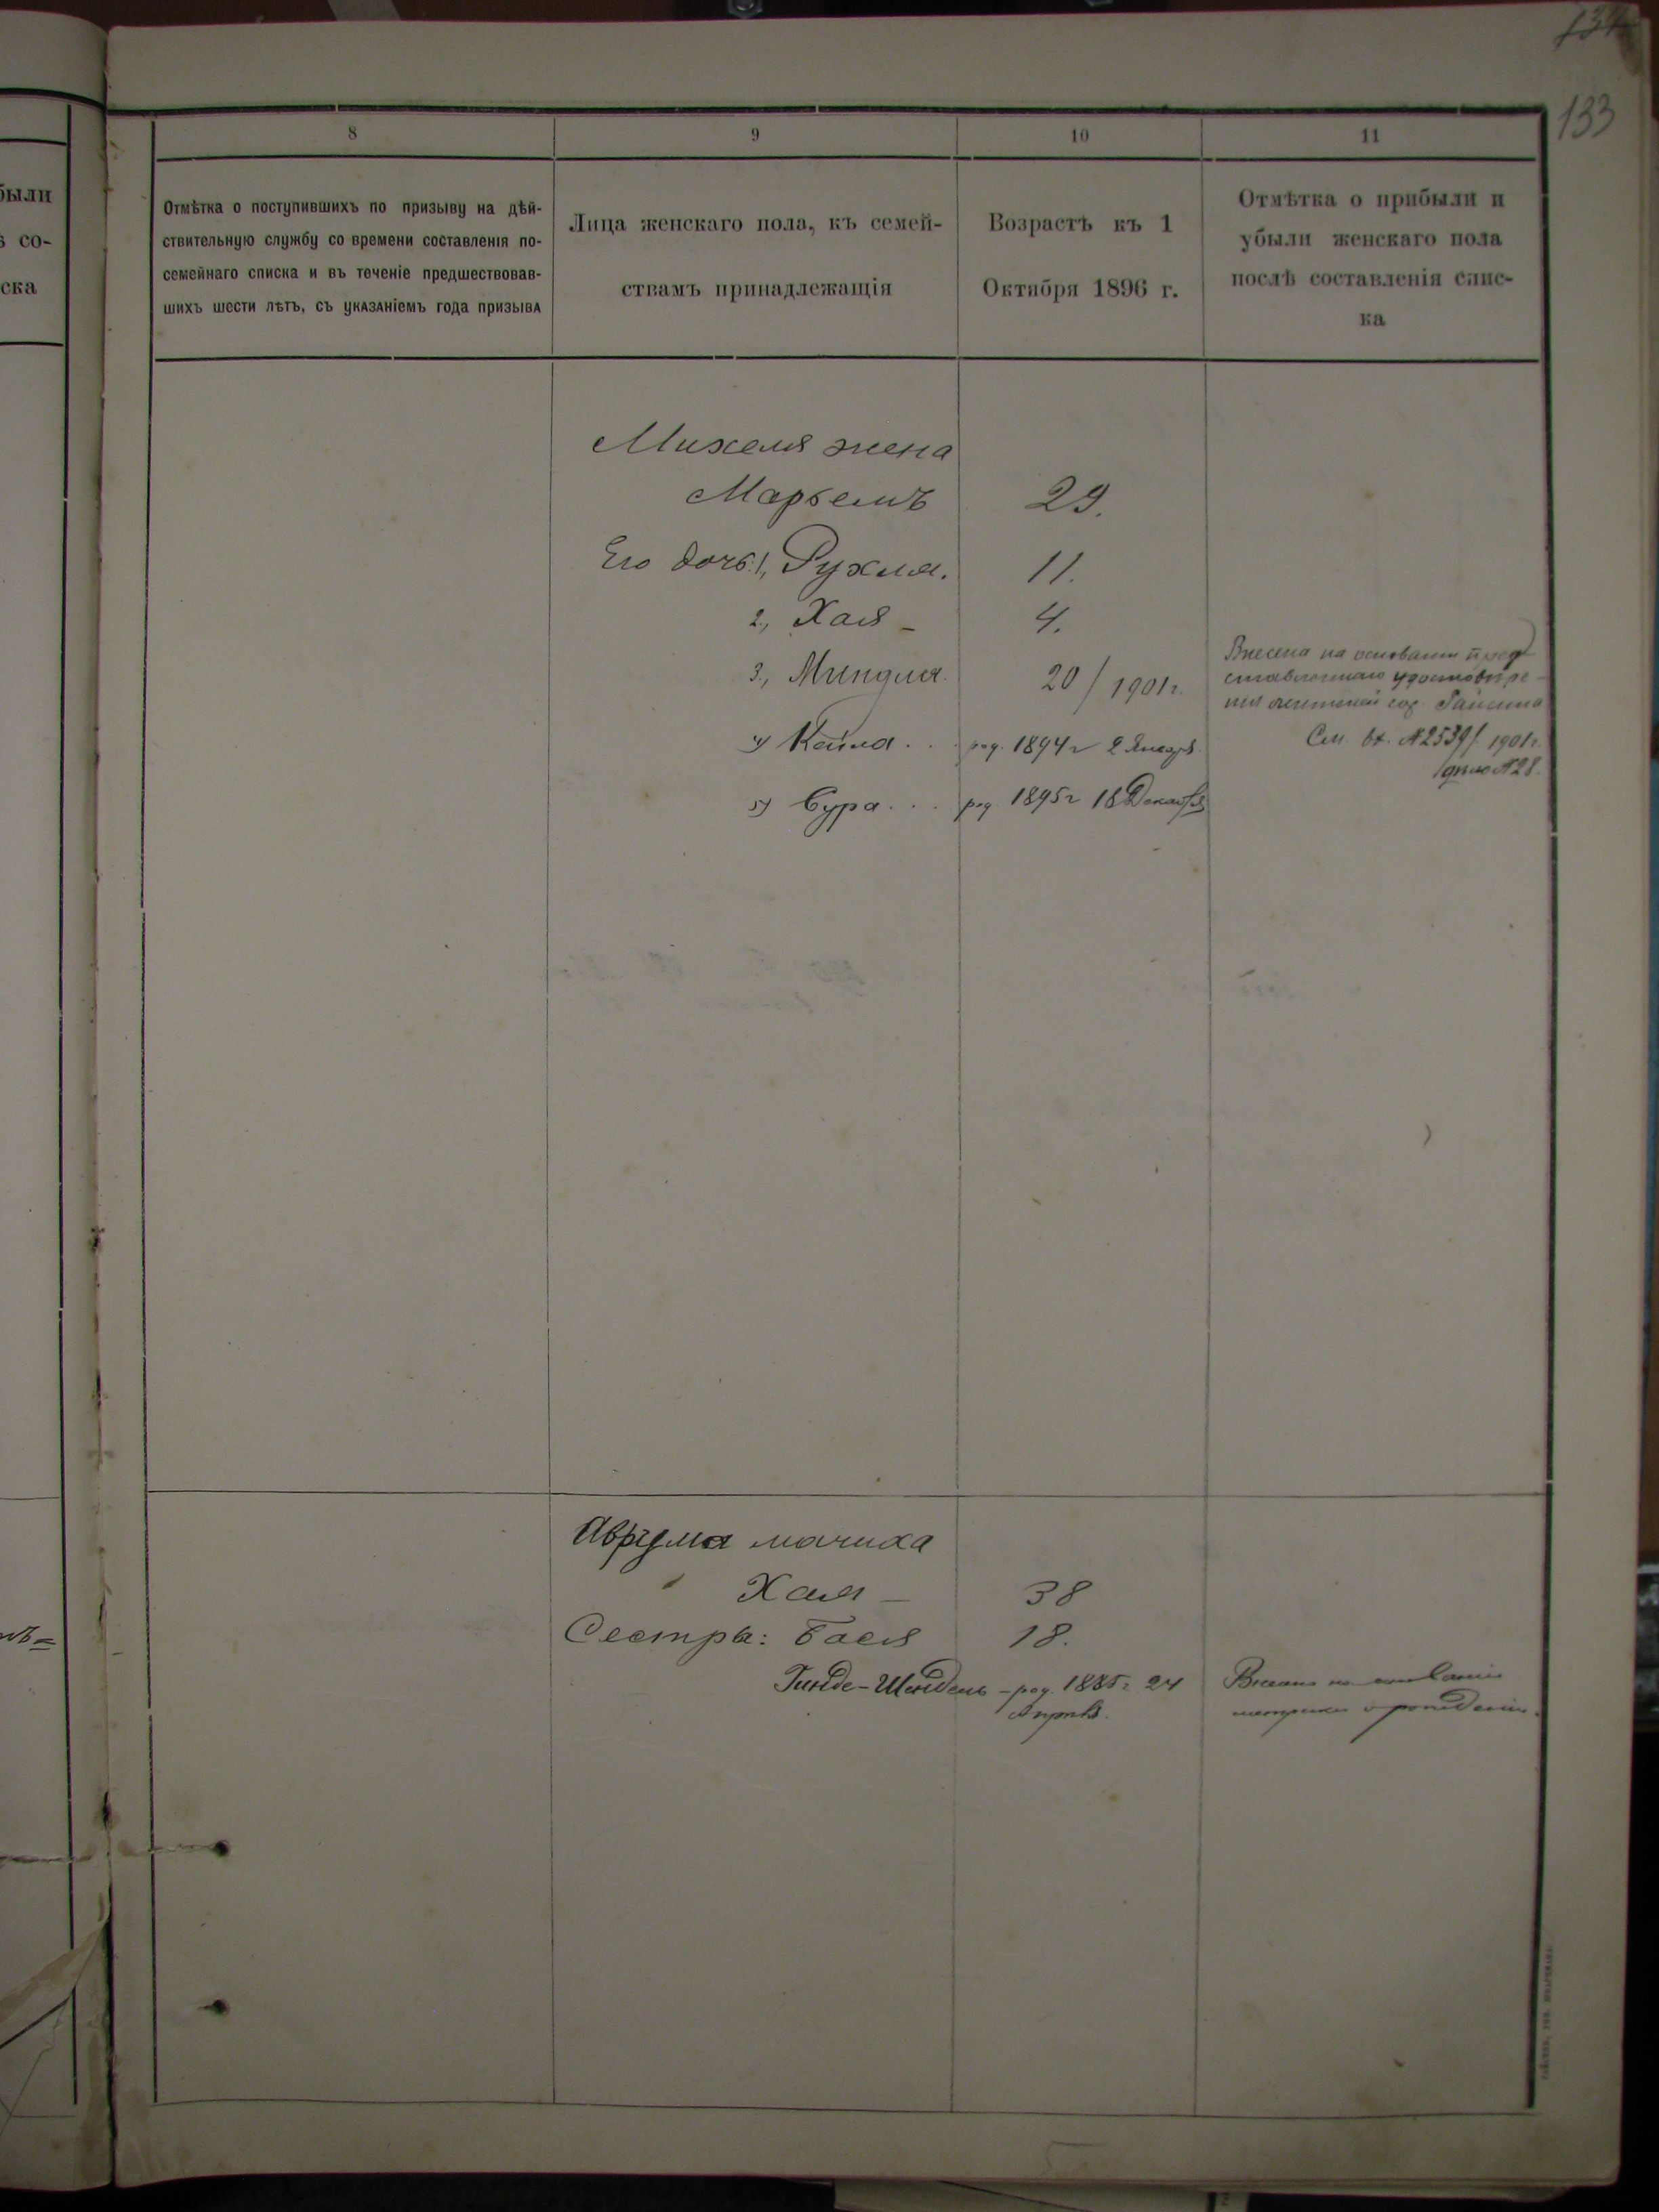 133
8
9
10
11
Отмѣтка о поступившихъ по призыву на дѣй-
ствительную службу со времени составленія по-
семейнаго списка и въ теченіе предшествовав-
шихъ шести лѣтъ, съ указаніемъ года призыва
Лица женскаго пола, къ семей-
ствамъ принадлежащія
Возрастъ къ 1
Октября 1896 г.
Отмѣтка о прибыли и
убыли женскаго пола
послѣ составленія спис-
ка
были
со-
ска
Михеля жена
Марьемъ 29.
Его дочь: 1, Рухля. 11.
2, Хая – 4.
3, Миндля. 20/1901 г.
Внесена на основаніи пред
ставленнаго удостовѣре-
нія гор. Гайсина
См. вх. №2539/ 1901 г.
дѣло №28.
4) Кейла . . род. 1894 г 2 Января
5) Сура . . . род. 1895 г 18 Декабря
Аврума мачиха
Хая – 38
Сестра: Бася 18.
Гинде-Шендель – род. 1885 г. 24
Апрѣля.
Внесена на основаніи
метрики о рожденіи.